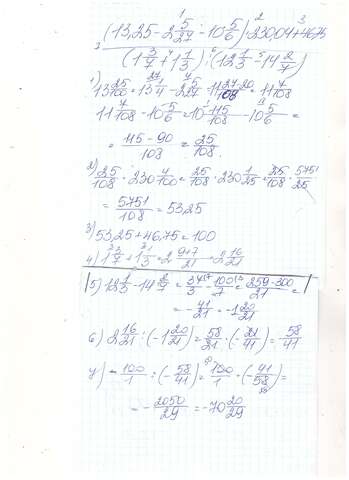 (13,25 - 2 5/27 - 10 5/6) · 230,04 + 46,75
(1 3/7 + 1 1/3) : (12 1/3 - 14 2/7)
1) 13 25/100 = 13 1/4 - 2 5/27 = 11 (27-20)/108 = 11 7/108
11 7/108 - 10 5/6 = 10 115/108 - 10 5/6 =
= (115 - 90)/108 = 25/108
2) 25/108 · 230 4/100 = 25/108 · 230 1/25 = 25/108 · 5751/25
= 5751/108 = 53,25
3) 53,25 + 46,75 = 100
4) 1 3/7 + 1 1/3 = 2 (9+7)/21 = 2 16/21
5) 12 1/3 - 14 2/7 = 37/3 - 100/7 = (259 - 300)/21 =
= - 41/21 = -1 20/21
6) 2 16/21 : (-1 20/21) = 58/21 · (- 21/41) = - 58/41
- 100/1 : (- 58/41) = 100/1 · (- 41/58) =
= - 2050/29 = -70 20/29